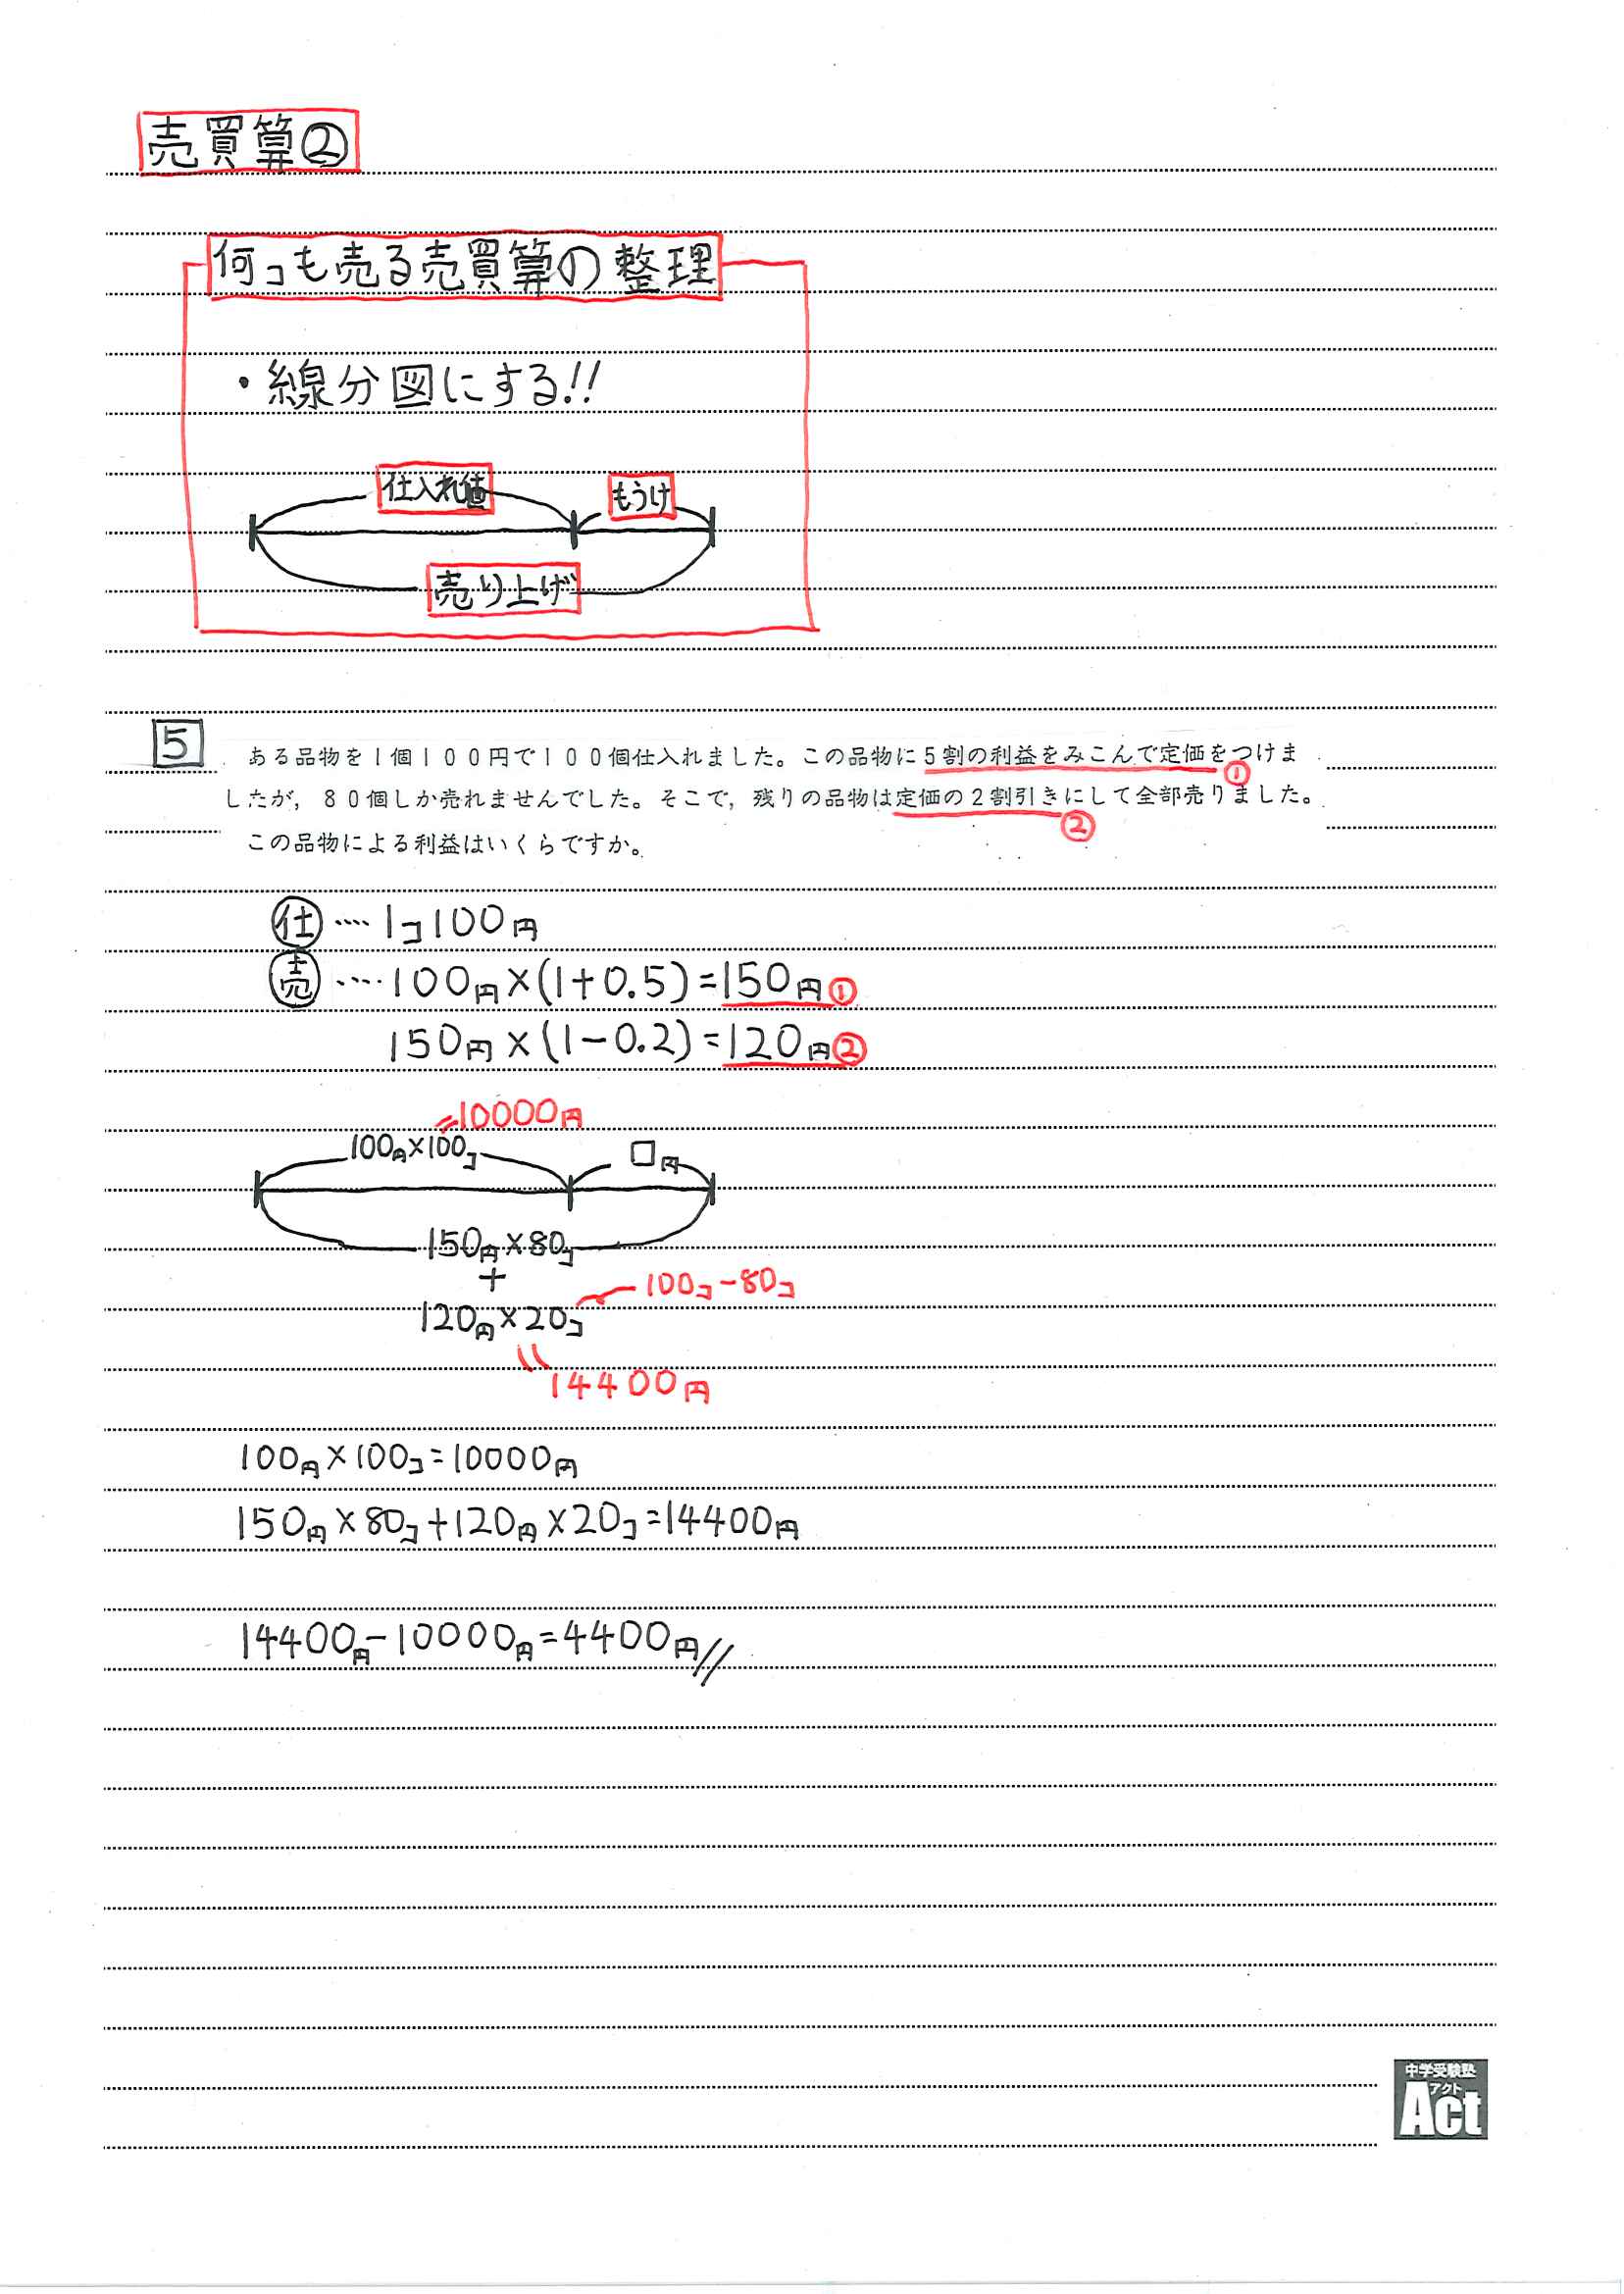 売買算②
何コも売る売買算の整理
・線分図にする!!
仕入れ値 もうけ
売り上げ
5 ある品物を1個100円で100個仕入れました。この品物に5割の利益をみこんで定価をつけま
①
したが，80個しか売れませんでした。そこで，残りの品物は定価の2割引きにして全部売りました。
②
この品物による利益はいくらですか。
仕 ‥‥ 1コ100円
売 ‥‥ 100円×(1+0.5)=150円①
150円×(1-0.2)=120円②
=10000円
100円×100コ □円
150円×80コ
+
100コ-80コ
120円×20コ
=
14400円
100円×100コ=10000円
150円×80コ+120円×20コ=14400円
14400円-10000円=4400円//
中学受験塾
アクト
Act